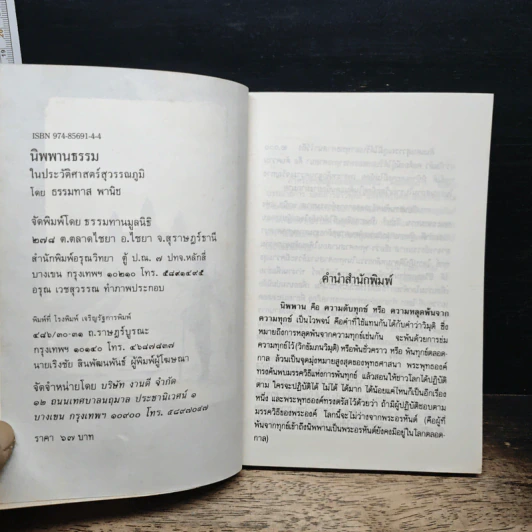 ISBN 974-85691-4-4
นิพพานธรรม
ในประวัติศาสตร์สุวรรณภูมิ
โดย ธรรมทาส พานิช
จัดพิมพ์โดย ธรรมทานมูลนิธิ
๒๗๘ ต.ตลาดไชยา อ.ไชยา จ.สุราษฎร์ธานี
สำนักพิมพ์อรุณวิทยา ตู้ ป.ณ. ๗ ปทจ.หลักสี่
บางเขน กรุงเทพฯ ๑๐๒๑๐ โทร. ๕๘๙๑๔๙๕
อรุณ เวชสุวรรณ ทำภาพประกอบ
พิมพ์ที่ โรงพิมพ์ เจริญรัฐการพิมพ์
ถ.ราษฎร์บูรณะ
กรุงเทพฯ ๑๐๑๔๐ โทร.
นายเริงชัย สินพัฒนพันธ์ ผู้พิมพ์ผู้โฆษณา
จัดจำหน่ายโดย บริษัท งานดี จำกัด
๑๒ ถนนเทศบาลนฤมาล ประชานิเวศน์ ๑
บางเขน กรุงเทพฯ ๑๐๙๐๐ โทร.
ราคา ๖๗ บาท
คำนำสำนักพิมพ์
นิพพาน คือ ความดับทุกข์ หรือ ความหลุดพ้นจาก
ความทุกข์ เป็นไวพจน์ คือคำที่ใช้แทนกันได้กับคำว่าวิมุติ ซึ่ง
หมายถึงการหลุดพ้นจากความทุกข์เช่นกัน จะพ้นด้วยการข่ม
ความทุกข์ไว้(วิกขัมภนวิมุติ) หรือพ้นชั่วคราว หรือ พ้นทุกข์ตลอด-
กาล ล้วนเป็นจุดมุ่งหมายสูงสุดของพุทธศาสนา พระพุทธองค์
ทรงค้นพบมรรควิธีแห่งการพ้นทุกข์ แล้วสอนให้ชาวโลกได้ปฏิบัติ
ตาม ใครจะปฏิบัติได้ ไม่ได้ ได้มาก ได้น้อยแค่ไหนก็เป็นอีกเรื่อง
หนึ่ง และพระพุทธองค์ทรงตรัสไว้ด้วยว่า ถ้ามีผู้ปฏิบัติชอบตาม
มรรควิธีของพระองค์ โลกนี้จะไม่ว่างจากพระอรหันต์ (คือผู้ที่
พ้นจากทุกข์เข้าถึงนิพพานเป็นพระอรหันต์ยังคงมีอยู่ในโลกตลอด-
กาล)